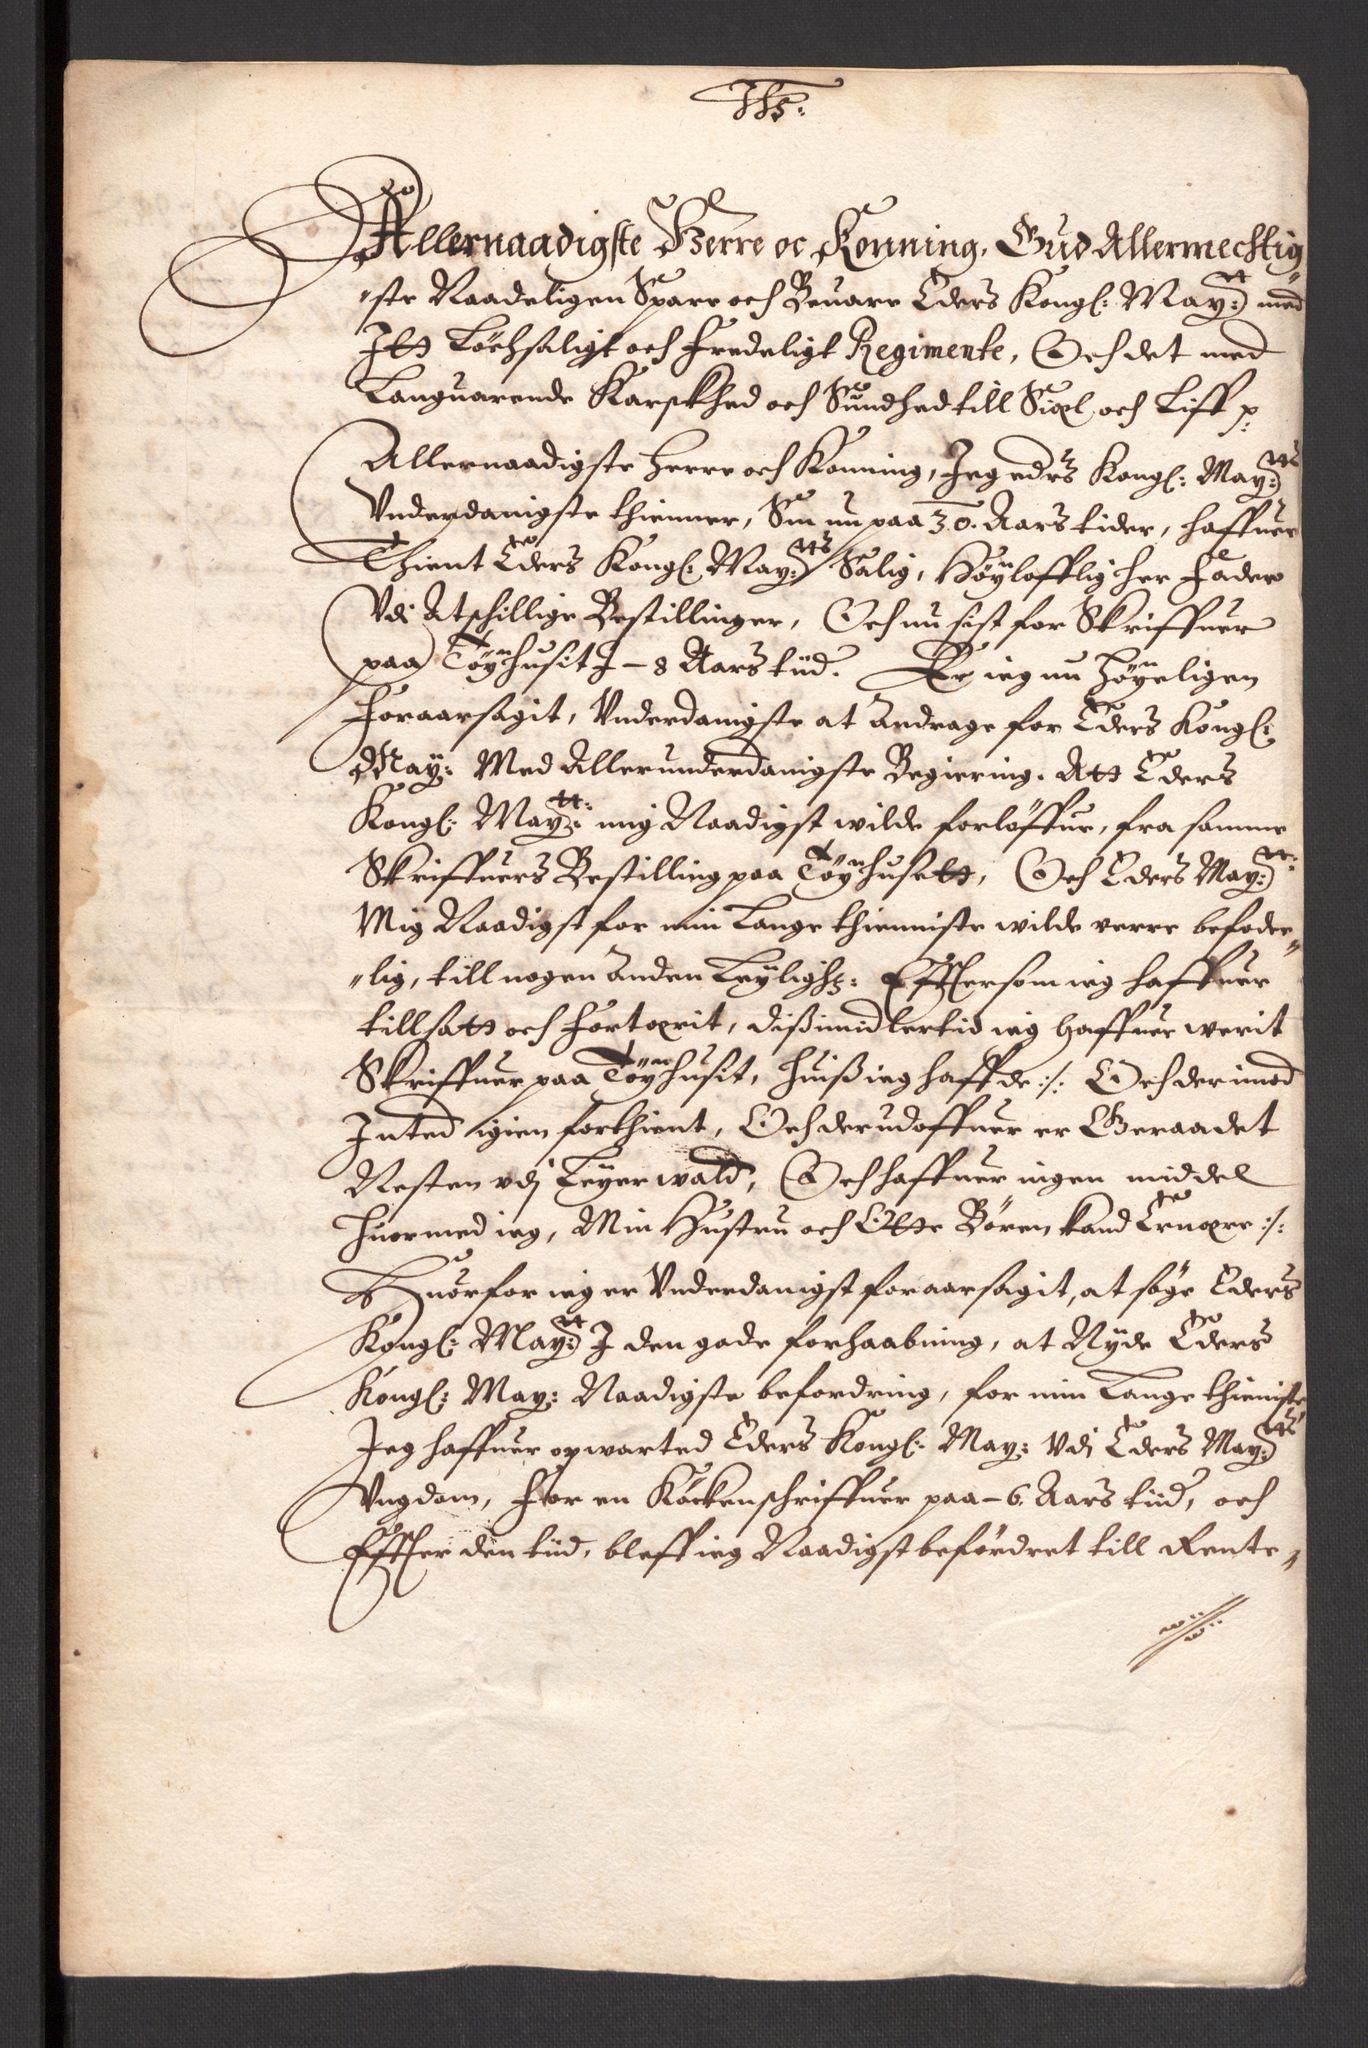 Ihs:
Allernaadigste Herre oc Konning, Gud Allermechtig„
„ste Naadeligen Spare och Beuare Eders Kongl: May:tt med
Itt Löchsaligt och Fredeligt Regimente, Och det med
Languarende Karskhed och Sundhed till Siæl och Liff p:
Allernaadigste Herre och Konning, Jeg eders Kongl: May:tts
Vnderdanigste thienner, Sin nu paa 30. Aars tider, haffuer
Thient Eders Kongl: May:tts Salig, Höylofflig her Fader
Vdi Atschillige Bestillinger, Och nu sist for Skriffuer
paa Töyhusit J – 8 Aars tiid. Er ieg nu höyeligen
Foraarsagit, Vnderdanigste at Andrage for Eders Kongl:
May: Med Allerunderdanigste Begiering, Att Eders
Kongl: May:tt: mig Naadigst wilde forlöffue, fra samme
Skriffuers Bestilling paa Töyhusett, Och Eders May:tt:
Mig Naadigst for min Lange thienniste wilde verre befode„
„lig, till nogen Anden Leyligh: Effter som ieg haffuer
tillsatt och Fortærit, dissimidlertid ieg haffuer werit
Skriffuer paa Töyhusit, huiss ieg haffde :/: Och der imod
Inted igien forthient, Och der udoffuer er Geraadet
Nesten vdj Leyerwald, Och haffuer ingen middel
huormed ieg, Min Hustru och Otte Bören, kand Ernære :/:
Huorfor ieg er Vnderdanigst foraarsagit, at söge Eders
Kongl: May:tt J den gode forhaabning, at Nyde Eders
Kongl: May: Naadigste befordring, for min Lange thieniste
Jeg haffuer opwarted Eders Kongl: May: Vdj Eders May:tts
Vngdom, For en Köckenschriffuer paa – 6. Aars tiid, och
Effter den tiid, bleff ieg Naadigst befordret till Rente„